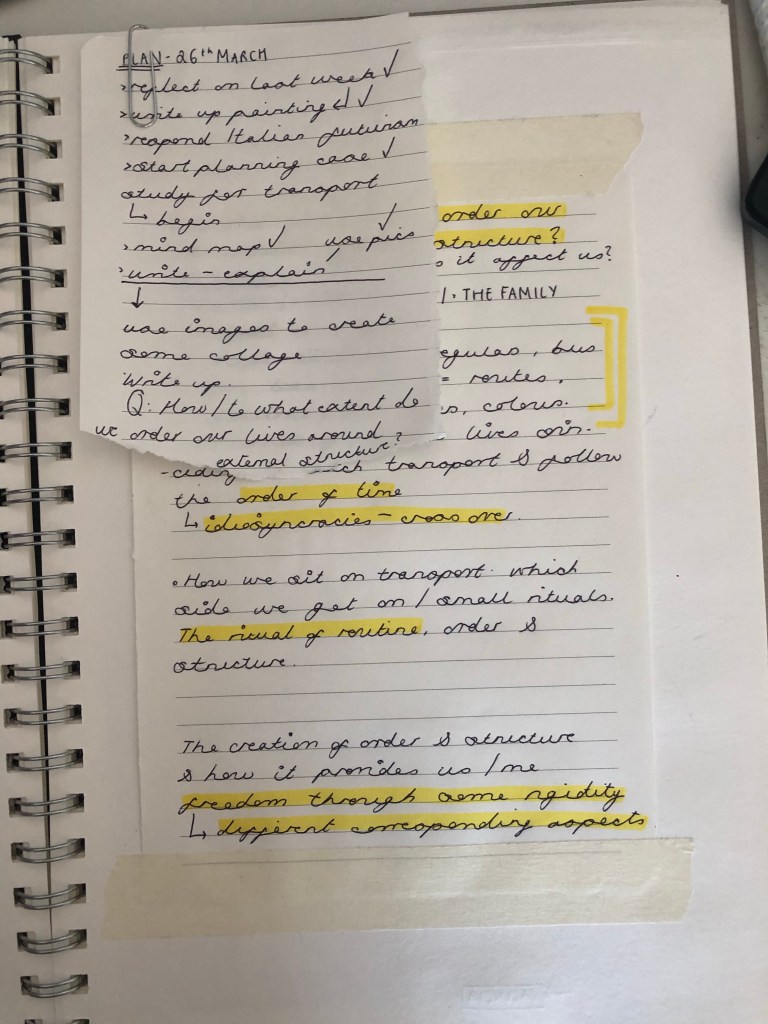 PLAN - 26th MARCH
>reflect on last week ✓
>write up painting ✓
>respond Italian futurism
>start planning case ✓
study for transport
↳ begin ✓
>mind map ✓ use pics
>write - explain
↓
use images to create
some collage
Write up.
Q: How/to what extent do
we order our lives around
external structure?
order our
structure?
it affect us?
1. THE FAMILY
, bus
= routes,
, colours.
lives
transport & follow
the order of time
↳ idiosyncracies - cross over.
• How we sit on transport. which
side we get on / small rituals.
The ritual of routine, order &
structure.
The creation of order & structure
& how it provides us / me
freedom through some rigidity
↳ different corresponding aspects